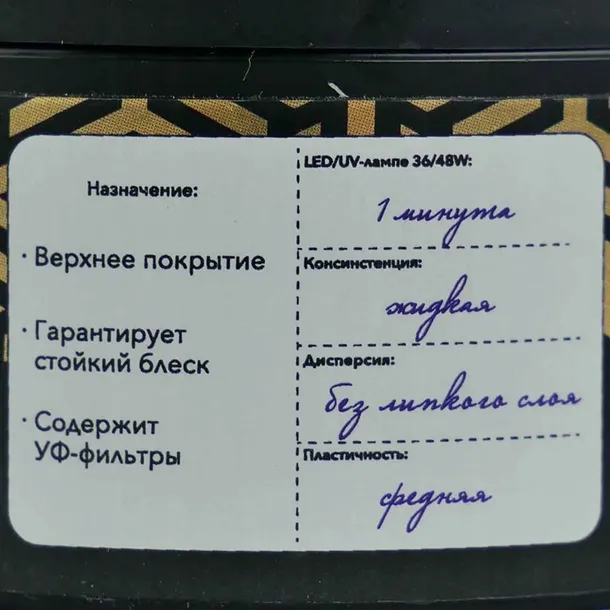 Назначение:
· Верхнее покрытие
· Гарантирует
стойкий блеск
· Содержит
УФ-фильтры
LED/UV-лампе 36/48W:
1 минута
Консинстенция:
жидкая
Дисперсия:
без липкого слоя
Пластичность:
средняя